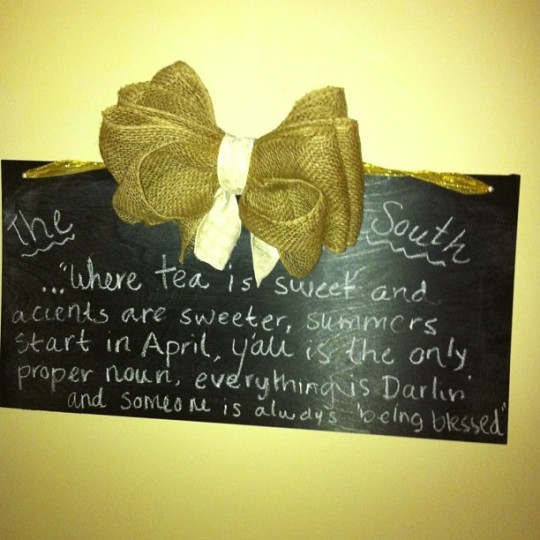 The South
..."Where tea is sweet and
accents are sweeter, summers
start in April, y'all is the only
proper noun, everything is Darlin'
and someone is always 'being blessed"